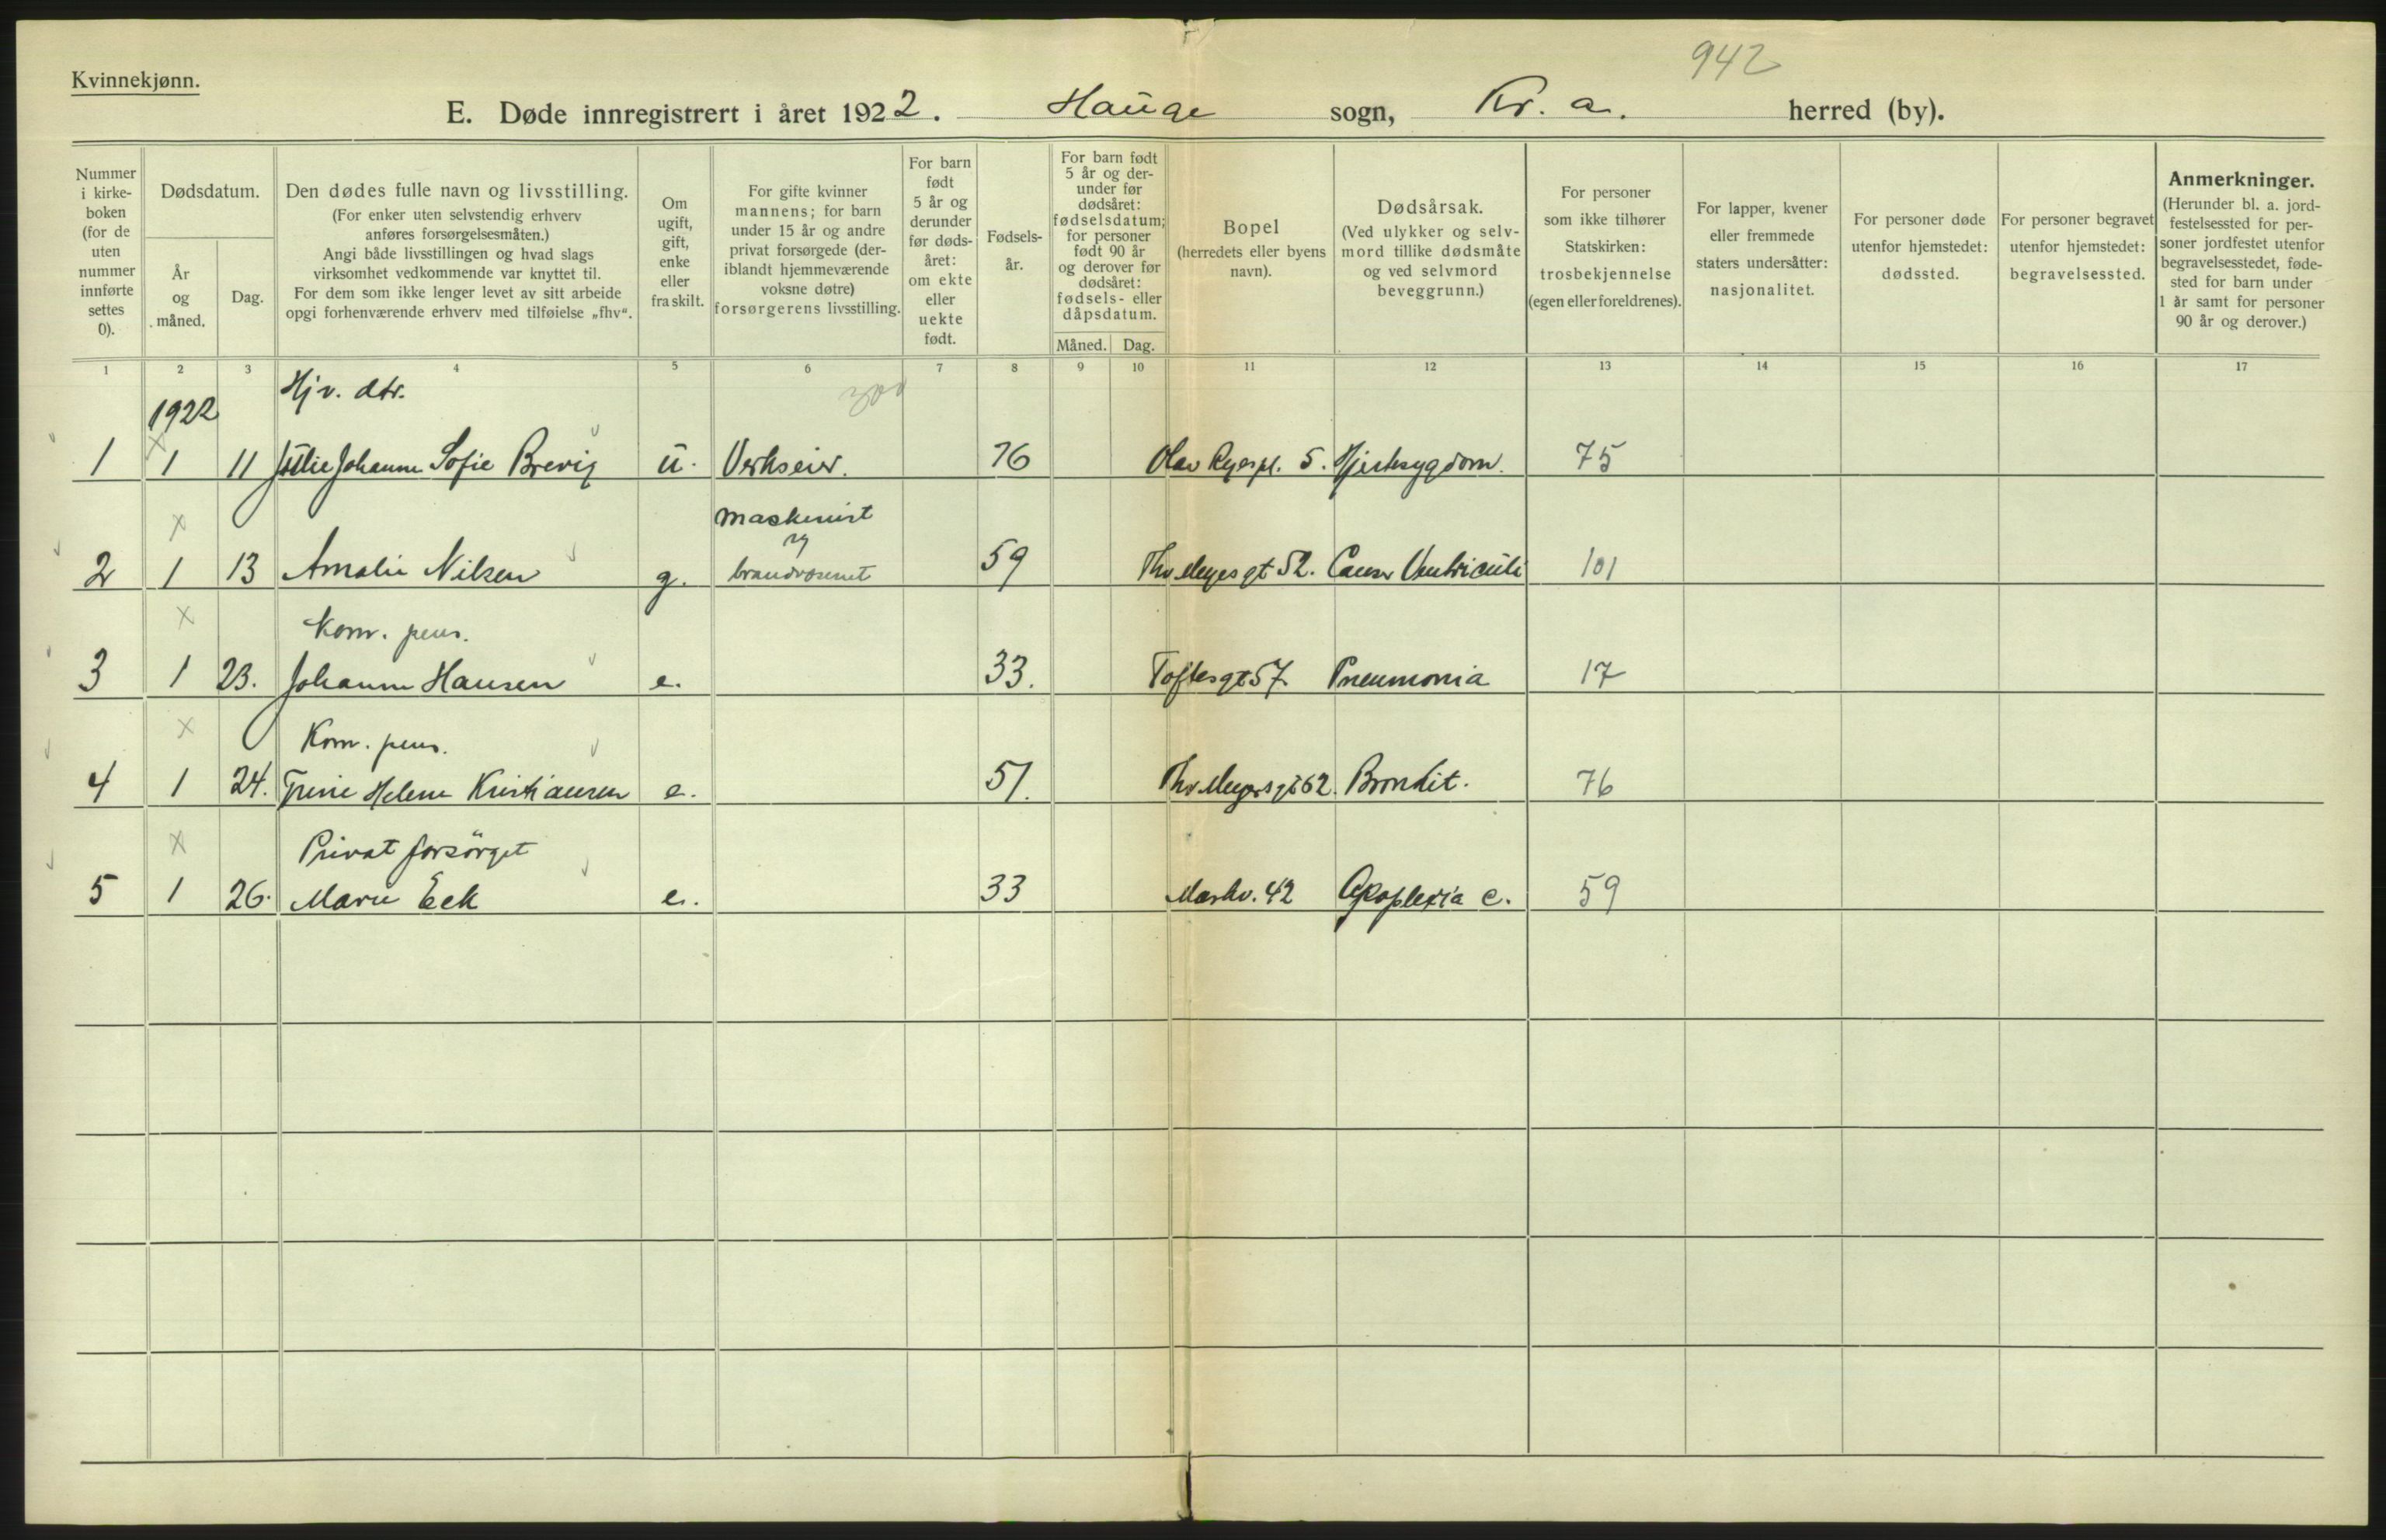 942
Kvinnekjønn.
E. Døde innregistrert i året 1922. Hauge sogn, Kr. a. herred (by).
Nummer i kirke-boken (for de uten nummer innførte settes 0).
Dødsdatum.
År og måned.
Dag.
Den dødes fulle navn og livsstilling.
(For enker uten selvstendig erhverv
anføres forsørgelsesmåten.)
Angi både livsstillingen og hvad slags
virksomhet vedkommende var knyttet til.
For dem som ikke lenger levet av sitt arbeide
opgi forhenværende erhverv med tilføielse „fhv“.
Om ugift, gift, enke eller fraskilt.
For gifte kvinner
mannens; for barn
under 15 år og andre
privat forsørgede (der-
iblandt hjemmeværende
voksne døtre)
forsørgerens livsstilling.
For barn
født
5 år og
derunder
før døds-
året:
om ekte
eller
uekte
født.
Fødsels-
år.
For barn født
5 år og der-
under før
dødsåret:
fødselsdatum;
for personer
født 90 år
og derover før
dødsåret:
fødsels- eller
dåpsdatum.
Måned. Dag.
Bopel
(herredets eller byens
navn).
Dødsårsak.
(Ved ulykker og selv-
mord tillike dødsmåte
og ved selvmord
beveggrunn.)
For personer
som ikke tilhører
Statskirken:
trosbekjennelse
(egen eller foreldrenes).
For lapper, kvener
eller fremmede
staters undersåtter:
nasjonalitet.
For personer døde
utenfor hjemstedet:
dødssted.
For personer begravet
utenfor hjemstedet:
begravelsessted.
Anmerkninger.
(Herunder bl. a. jord-
festelsessted for per-
soner jordfestet utenfor
begravelsesstedet, føde-
sted for barn under
1 år samt for personer
90 år og derover.)
1 2 3 4 5 6 7 8 9 10 11 12 13 14 15 16 17
Hjv. dtr. 300
1922
1 1 11 Julie Johanne Sofie Brevig u. Verkseier. 76 Olav Ryes pl. 5. Hjertesygdom. 75
Maskinist
v
2 1 13 Amalie Nilsen g. brandvæsenet 59 Thv Meyes gt 52. Cancer Ventriculi 101
Kom. pens.
3 1 23. Johanne Hansen e. 33. Toftesgt 57. Pneumonia 17
Kom. pens.
4 1 24. Trine Helene Kristiansen e. 51. Thv Meyers gt 62. Bronkit. 76
Privat forsörget
5 1 26. Marie Eek e. 33 Markv. 42 Apoplexia c. 59